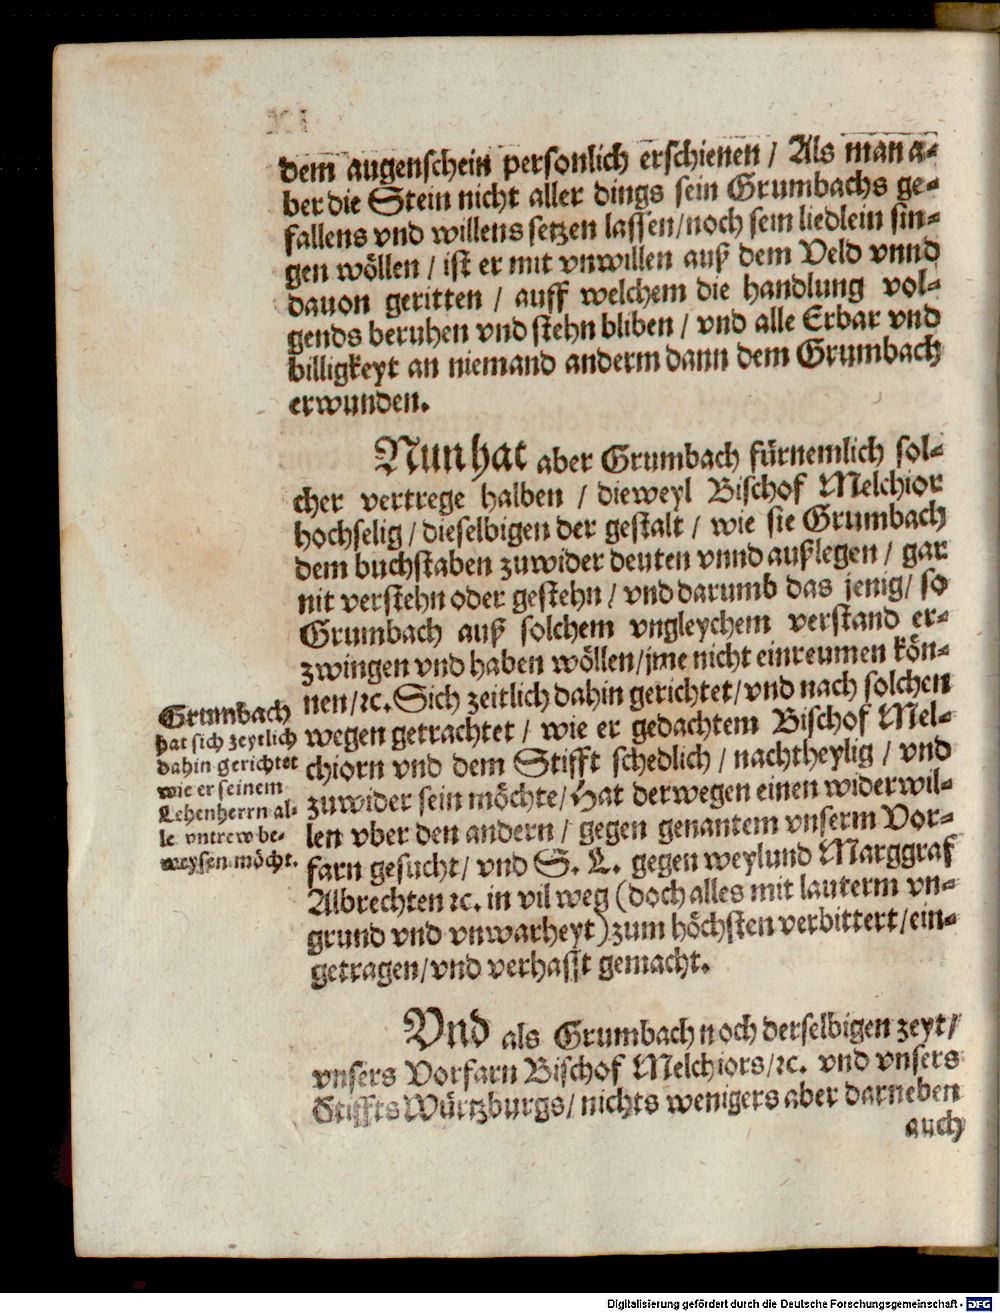 dem augenschein personlich erschienen / Als man a-
ber die Stein nicht aller dings sein Grumbachs ge-
fallens vnd willens setzen lassen/noch sein liedlein sin-
gen wöllen / ist er mit vnwillen auß dem Veld vnnd
dauon geritten / auff welchem die handlung vol-
gends beruhen vnd stehn bliben / vnd alle Erbar vnd
billigkeyt an niemand anderm dann dem Grumbach
erwunden.
Nun hat aber Grumbach fürnemlich sol-
cher vertrege halben / dieweyl Bischof Melchior
hochselig / dieselbigen der gestalt / wie sie Grumbach
dem buchstaben zuwider deuten vnnd außlegen / gar
nit verstehn oder gestehn / vnd darumb das jenig/ so
Grumbach auß solchem vngleychem verstand er-
zwingen vnd haben wöllen/jme nicht einreumen kön-
nen/ꝛc. Sich zeitlich dahin gerichtet/vnd nach solchen
wegen getrachtet / wie er gedachtem Bischof Mel-
chiorn vnd dem Stifft schedlich / nachtheylig / vnd
zuwider sein möchte/Hat derwegen einen widerwil-
len vber den andern / gegen genantem vnserm Vor-
farn gesucht/ vnd S. L. gegen weylund Marggraf
Albrechten ꝛc. in vil weg (doch alles mit lauterm vn-
grund vnd vnwarheyt) zum höchsten verbittert/ein-
getragen/vnd verhasst gemacht.
Grumbach
hat sich zeytlich
dahin gerichtet
wie er seinem
Lehenherrn al-
le vntrew be-
weysen möcht.
Vnd als Grumbach noch derselbigen zeyt/
vnsers Vorfarn Bischof Melchiors/ꝛc. vnd vnsers
Stiffts Würtzburgs/ nichts wenigers aber darneben
auch
Digitalisierung gefördert durch die Deutsche Forschungsgemeinschaft - DFG